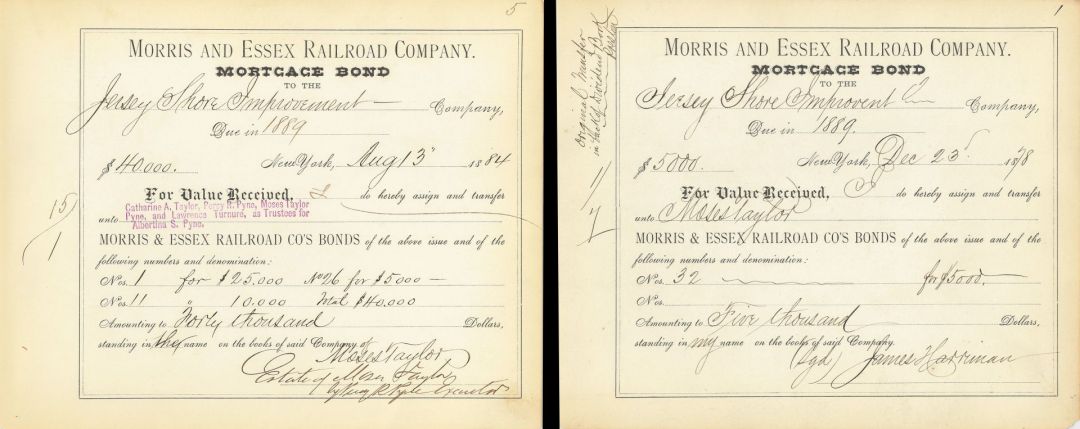 5
MORRIS AND ESSEX RAILROAD COMPANY.
MORTGAGE BOND
TO THE
Jersey Shore Improvement — Company,
Due in 1889
$40.000. New York, Aug 13" 1884
For Value Received, I do hereby assign and transfer
unto Catharine A. Taylor, Percy R. Pyne, Moses Taylor
Pyne, and Lawrence Turnure, as Trustees for
Albertina S. Pyne.
15
1
MORRIS & ESSEX RAILROAD CO'S BONDS of the above issue and of the
following numbers and denomination:
Nos. 1 for $25.000 No 26 for $5000 —
Nos. 11 " 10.000 Total $40.000
Amounting to Forty thousand Dollars,
standing in the name on the books of said Company of
Moses Taylor
Estate of Moses Taylor
by Percy R Pyne Executor
1
Original Transfer
in back of Dividend Book
MORRIS AND ESSEX RAILROAD COMPANY.
MORTGAGE BOND
TO THE
Jersey Shore Improvent Company,
Due in 1889.
$5000. New York, Dec 23d 1878
For Value Received, I do hereby assign and transfer
unto Moses Taylor
11
7
MORRIS & ESSEX RAILROAD CO'S BONDS of the above issue and of the
following numbers and denomination:
Nos. 32 for $5000.
Nos.
Amounting to Five thousand Dollars,
standing in my name on the books of said Company.
(sgd) James Harriman